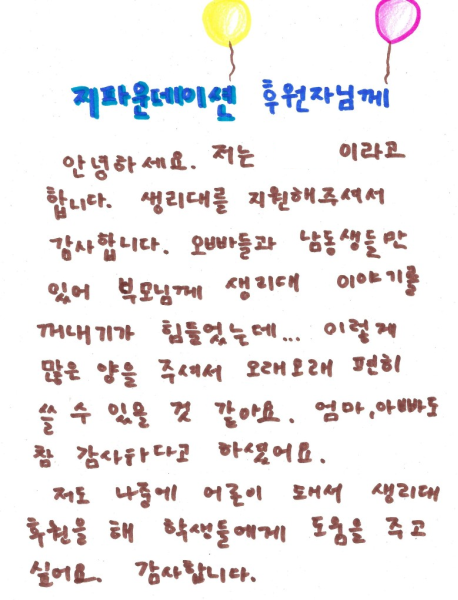 지파운데이션 후원자님께
안녕하세요. 저는 이라고
합니다. 생리대를 지원해주셔서
감사합니다. 오빠들과 남동생들만
있어 부모님께 생리대 이야기를
꺼내기가 힘들었는데... 이렇게
많은 양을 주셔서 오래오래 편히
쓸 수 있을 것 같아요. 엄마,아빠도
참 감사하다고 하셨어요.
저도 나중에 어른이 돼서 생리대
후원을 해 학생들에게 도움을 주고
싶어요. 감사합니다.